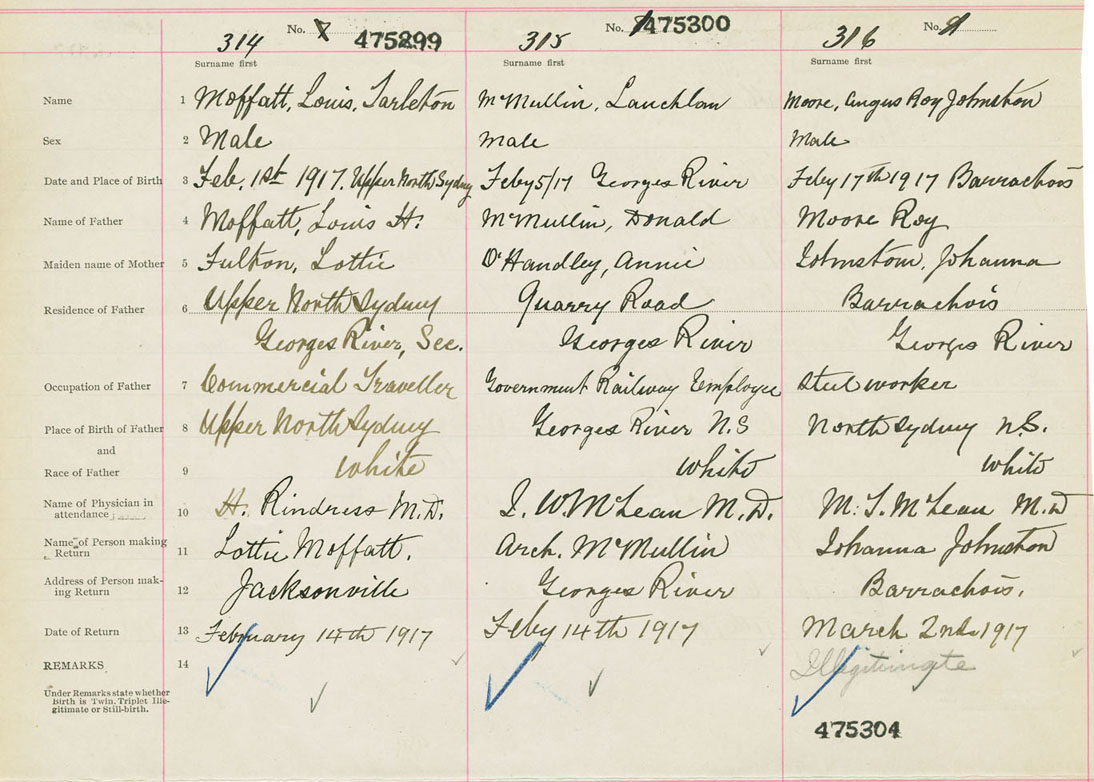 314 No. 7 475299 315 No. 475300 316 No. 9
Surname first Surname first Surname first
Name 1 Moffatt, Louis, Tarleton McMullin, Lauchlan Moore, Angus Roy Johnston
Sex 2 Male Male Male
Date and Place of Birth 3 Feb. 1st 1917. Upper North Sydney Feby 5/17 Georges River Feby 17th 1917 Barrachois
Name of Father 4 Moffatt, Louis H. McMullin, Donald Moore Roy
Maiden name of Mother 5 Fulton, Lottie O'Handley, Annie Johnstom, Johanna
Residence of Father 6 Upper North Sydney Quarry Road Barrachois
Georges River, Sec. Georges River Georges River
Occupation of Father 7 Commercial Traveller Government Railway Employee Steel worker
Place of Birth of Father 8 Upper North Sydney Georges River N.S North Sydney N.S.
and
Race of Father 9 White White White
Name of Physician in
attendance 10 H. Rindress M.D. J. W. McLean M.D. M. T. McLean M.D
Name of Person making
Return 11 Lottie Moffatt. Arch. McMullin Johanna Johnston
Address of Person mak-
ing Return 12 Jacksonville Georges River Barrachois.
Date of Return 13 February 14th 1917 Feby 14th 1917 March 2nd 1917
REMARKS 14 Illegitimate
Under Remarks state whether
Birth is Twin, Triplet Ille-
gitimate or Still-birth.
475304